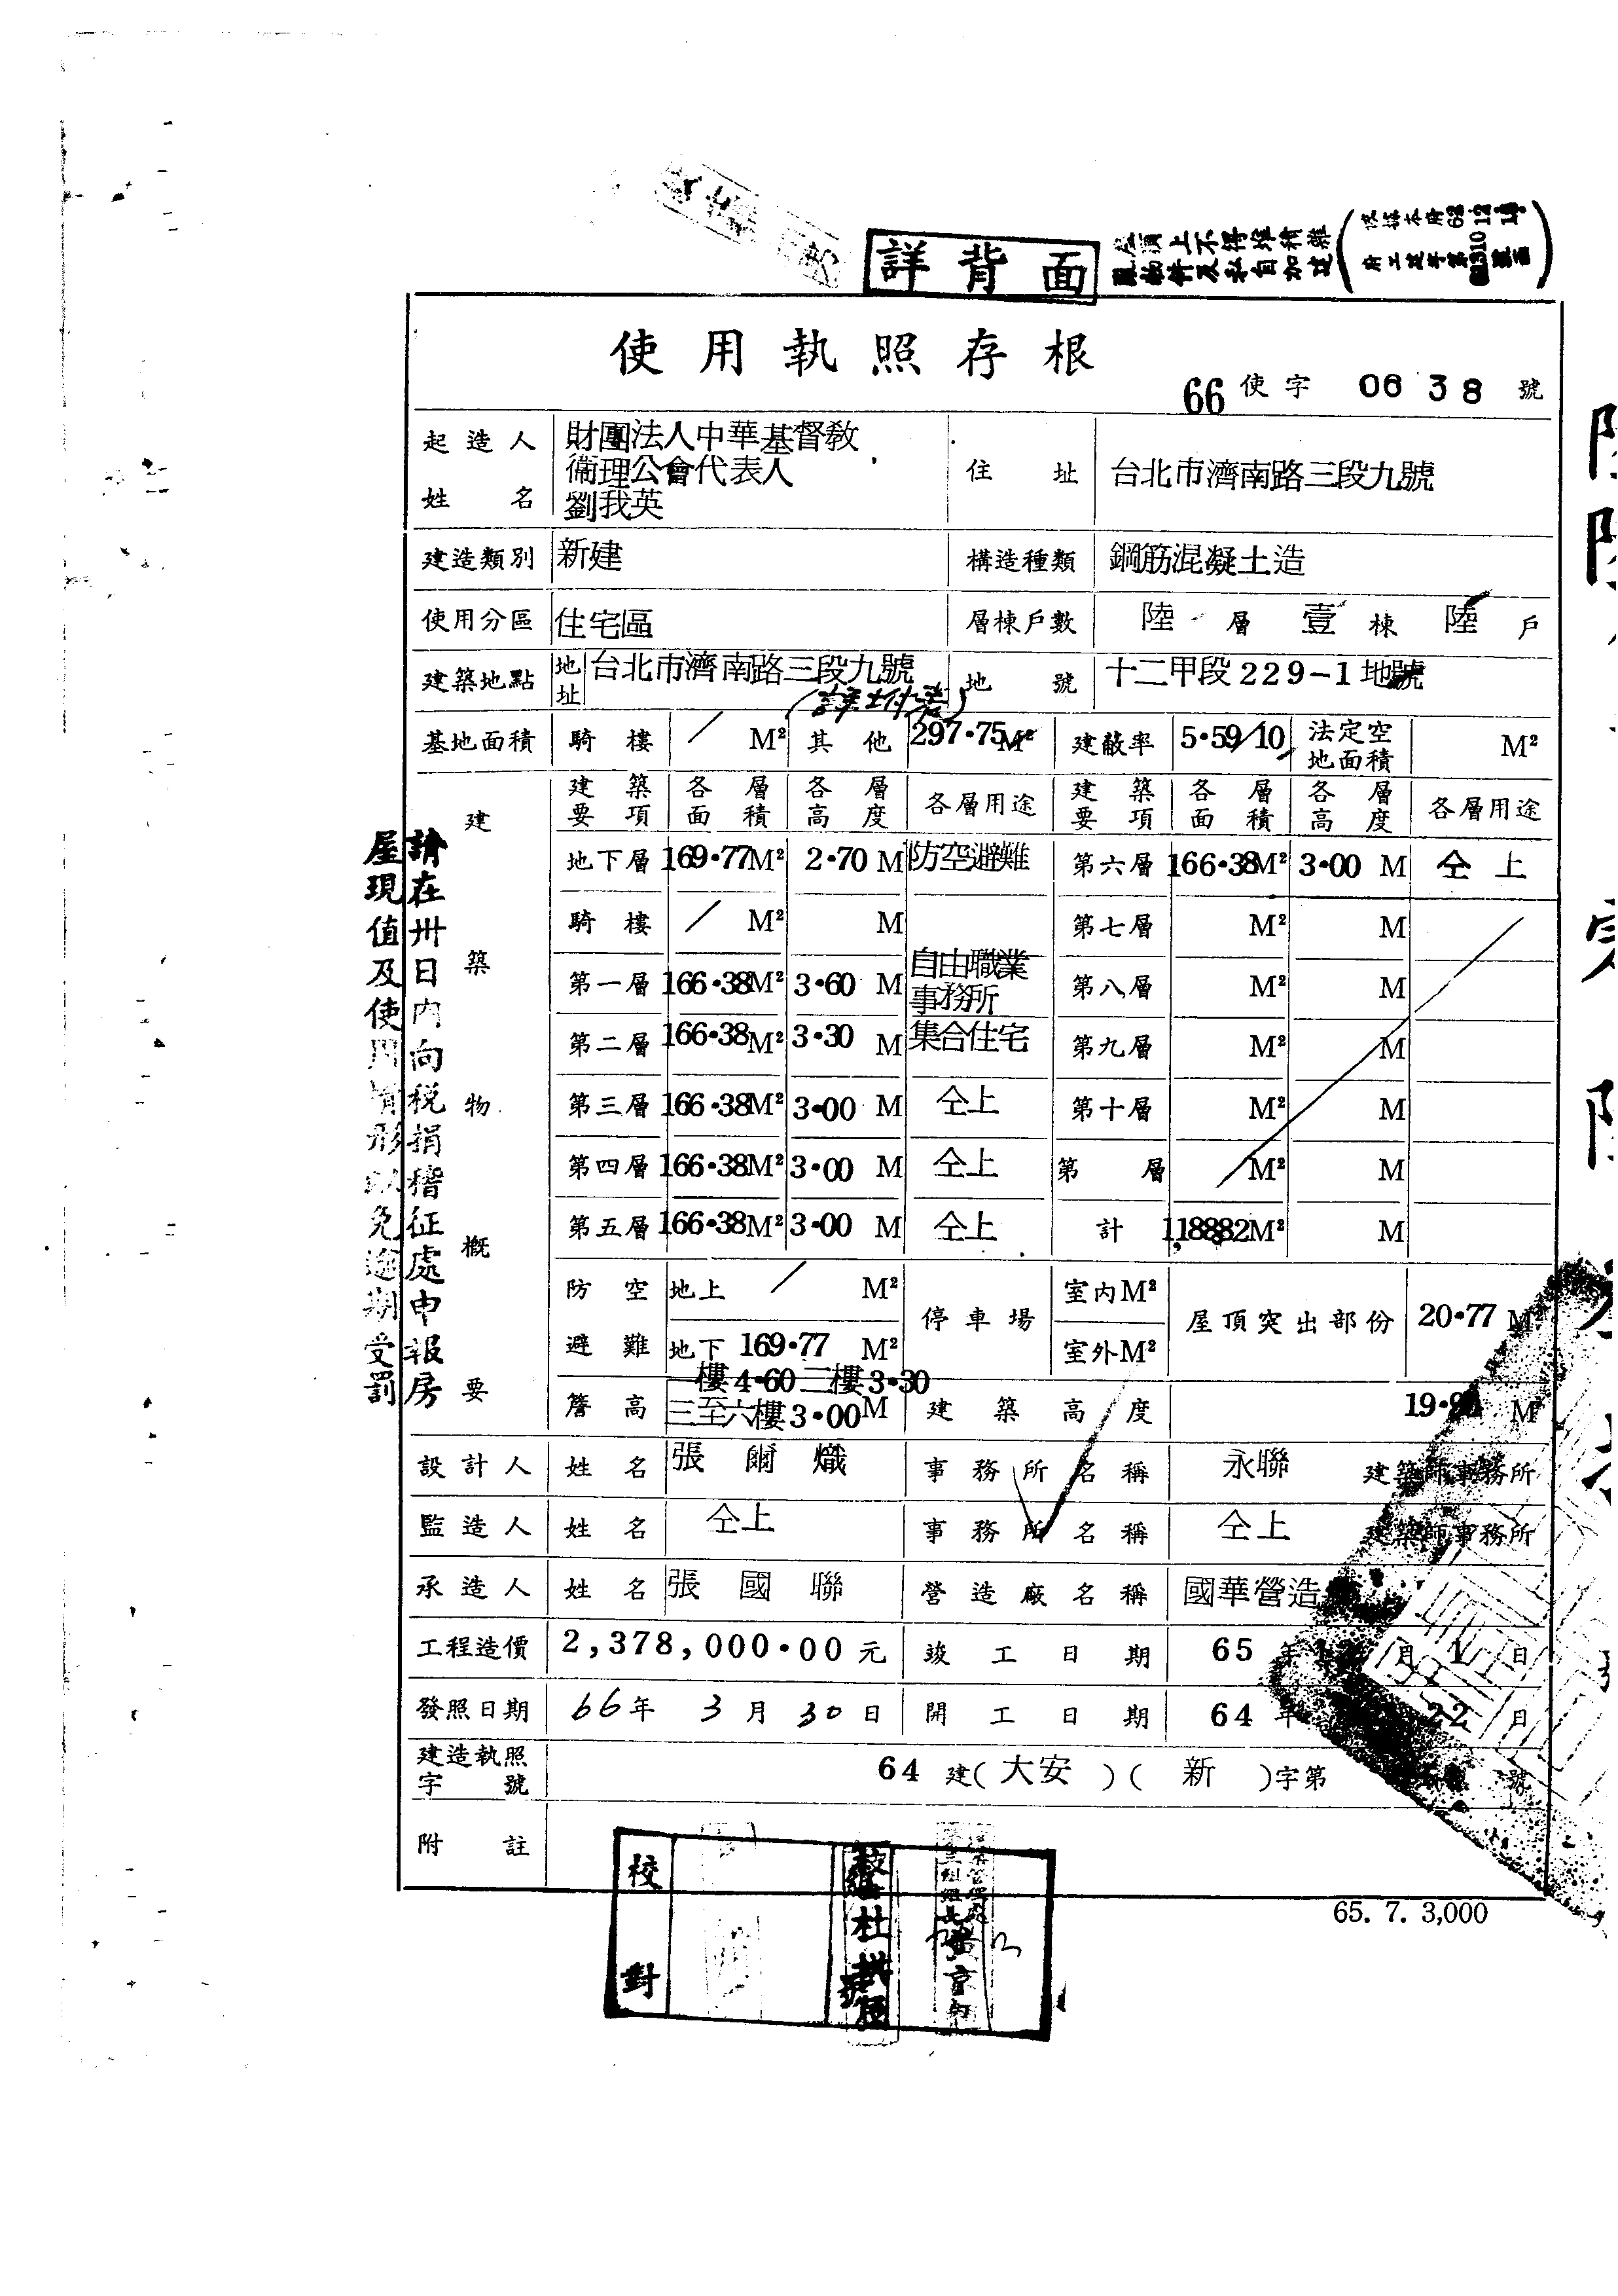 詳背面
屋頂上不得堆積雜
物料及私自加建
使用執照存根
66 使字 0638 號
起造人姓名 財團法人中華基督教
衛理公會代表人
劉我英
住址 台北市濟南路三段九號
建造類別 新建 構造種類 鋼筋混凝土造
使用分區 住宅區 層棟戶數 陸層壹棟陸戶
建築地點 地址 台北市濟南路三段九號 地號 十二甲段229-1地號
(詳附表)
基地面積 騎樓 / M² 其他 297.75M² 建蔽率 5.59/10 法定空地面積 M²
建築物概要
建築要項 各層面積 各層高度 各層用途 建築要項 各層面積 各層高度 各層用途
地下層 169.77M² 2.70 M 防空避難 第六層 166.38M² 3.00 M 仝上
騎樓 / M² M 第七層 M² M
第一層 166.38M² 3.60 M 自由職業事務所 第八層 M² M
第二層 166.38M² 3.30 M 集合住宅 第九層 M² M
第三層 166.38M² 3.00 M 仝上 第十層 M² M
第四層 166.38M² 3.00 M 仝上 第 層 M² M
第五層 166.38M² 3.00 M 仝上 計 M² M
防空避難 地上 / M² 停車場 室內M² 屋頂突出部份 20.77 M²
地下 169.77 M² 室外M²
簷高 一樓4.60二樓3.30
三至六樓3.00M 建築高度 M
設計人 姓名 張爾熾 事務所名稱 永聯 建築師事務所
監造人 姓名 仝上 事務所名稱 仝上 建築師事務所
承造人 姓名 張國聯 營造廠名稱 國華營造
工程造價 2,378,000.00元 竣工日期 65年 月1日
發照日期 66年3月30日 開工日期 64年 22日
建造執照字號 64建(大安)(新)字第 號
附註
65. 7. 3,000
校對
請在卅日內向稅捐稽征處申報房
屋現值及使用情形以免逾期受罰